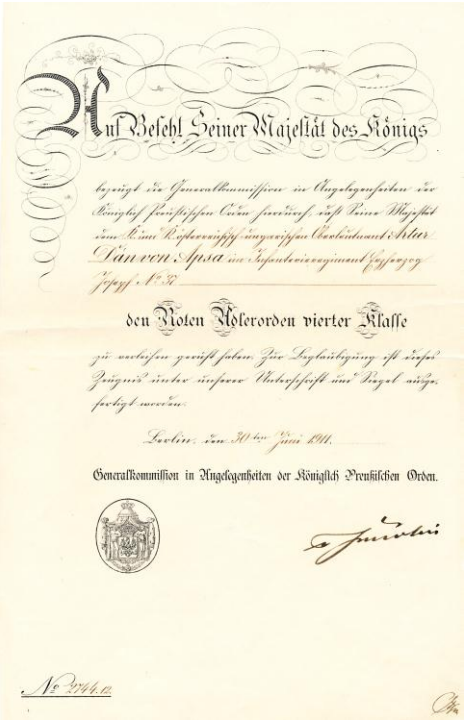 Auf Befehl Seiner Majestät des Königs
bezeugt die Generalkommission in Angelegenheiten der
Königlich Preußischen Orden hierdurch, daß Seine Majestät
dem K. und K. österreichisch-ungarischen Oberleutnant Artur
Dán von Apsa im Infanterieregiment Erzherzog
Joseph No 37
den Roten Adlerorden vierter Klasse
zu verleihen geruht haben. Zur Beglaubigung ist dieses
Zeugnis unter unserer Unterschrift und Siegel ausge-
fertigt worden.
Berlin, den 30ten Juni 1911.
Generalkommission in Angelegenheiten der Königlich Preußischen Orden.
No 2744.12.